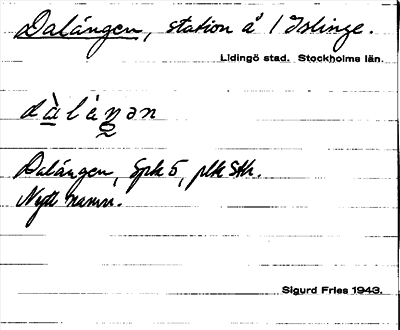 Dalängen, station å 1 Islinge.
Lidingö stad. Stockholms län.
dàlàŋən
Dalängen, Spk 5, plk Sth.
Nytt namn.
Sigurd Fries 1943.